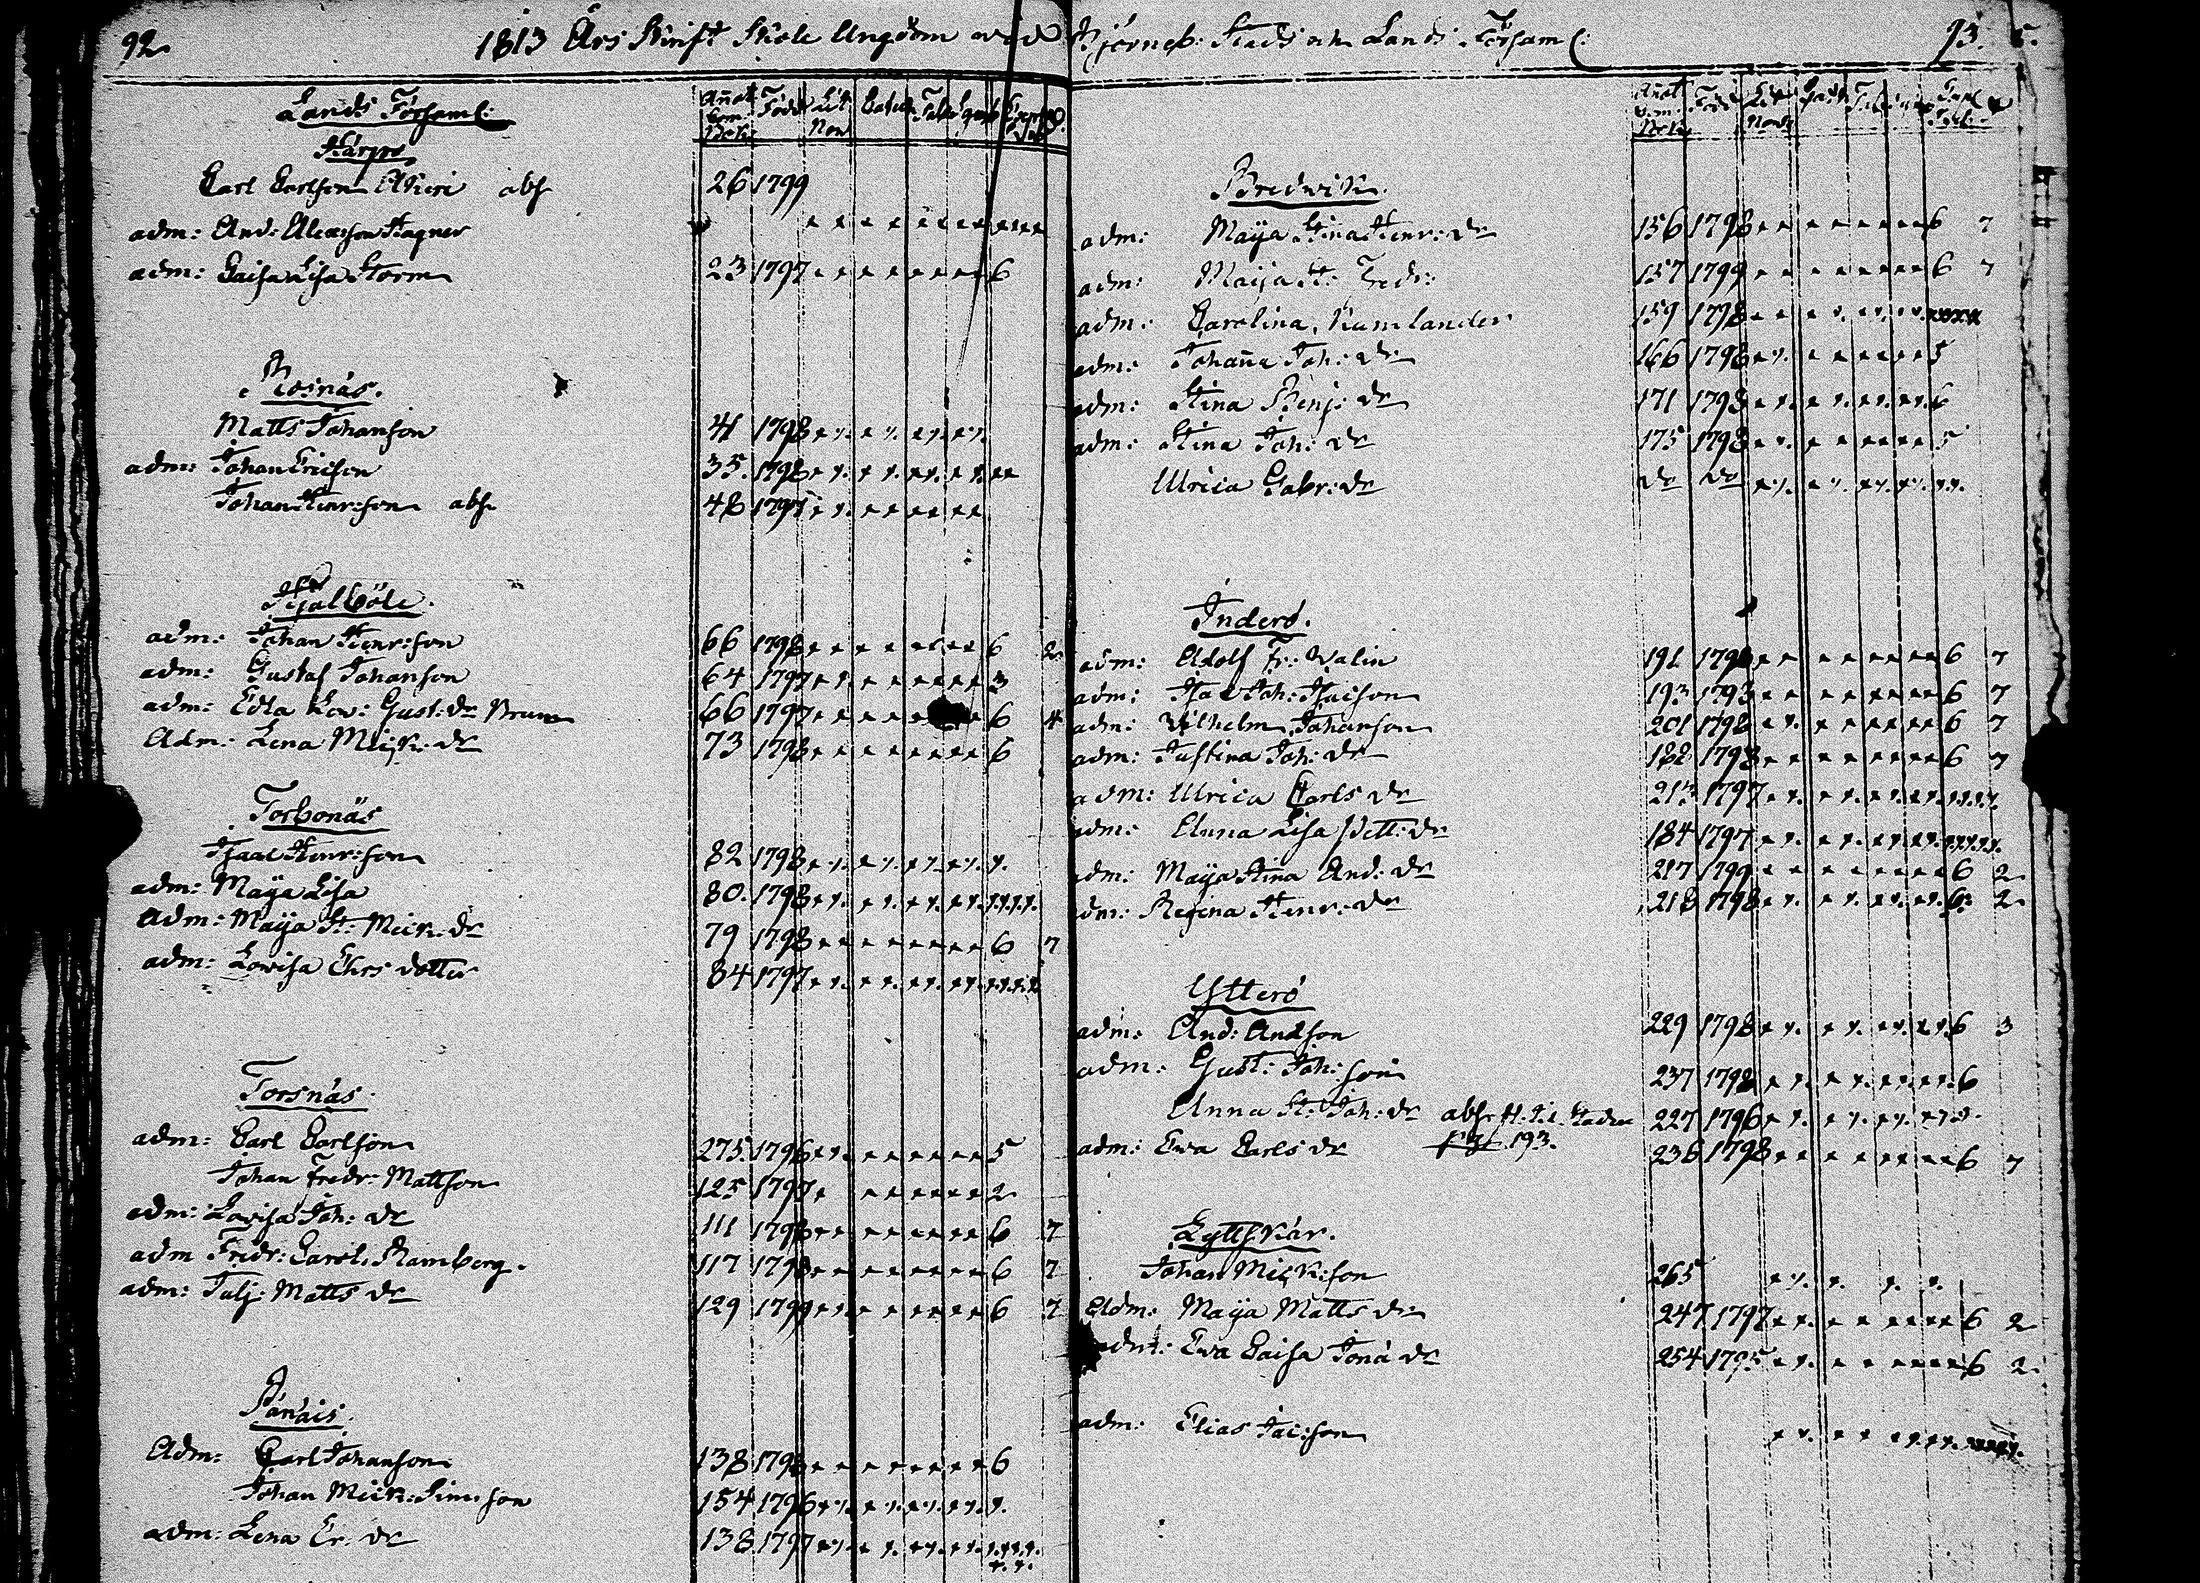 92.
1813 Års Skrift Skole Ungdom wid Björneb: Stads och Lands Församl:
93.
Lands Församl:
Född
Härpö
Carl Carlson abs 26 1799
adm: And: Hagner
adm: Caisa Lisa Storm 23 1797 6
Rosnäs.
Matts Johanson 41 1798
adm: Johan Ericson 35. 1798
Johan Henr:son abs 48 1797
Hjulböle.
adm: Johan Henr:son 66 1798 6 2
adm: Gustaf Johanson 64 1797 3
adm: Edla Lov: Gust: dr 66 1797 6 4
Adm: Lena Mick: dr 73 1798 6
Torbonäs
Isaac Henr:son 82 1798
adm: Maja Lisa 80. 1798
Adm: Maja St: Mick: dr 79 1798 6 7
adm: Lovisa Ehrs dotter 84 1797
Torsnäs.
adm: Carl Carlson 275. 1796 5
Johan Fredr: Mattson 125 1797 2
adm: Lovisa Joh: dr 111 1798 6 7
adm Fredr: Carol. Ramberg. 117 1798 6 7
adm: Julj: Matts dr 129 1799 6 7
Pänäis.
Adm: Carl Johanson 138 1798 6
Johan Mick: Sim:son 154 1796
adm: Lena Er: dr 138 1797
Född
Bredwik.
adm: Maja Stina Henr: dr 156 1798 6 7
adm: Maija St: Fredr: 157 1799 6 7
adm: Carolina Rumlander 159 1798
adm: Johanna Joh: dr 166 1798 5
adm: Stina Benj: dr 171 1798 6
adm: Stina Joh: dr 175 1798 5
Ulrica Gabr: dr do do
Inderö.
adm: Adolf Fr: Walin 191 1798 6 7
adm: Isac Joh: Isacson 193 1793 6 7
adm: Wilhelm Johanson 201 1798 6 7
adm: Justina Joh: dr 188 1798 6 7
adm: Ulrica Carls dr 213 1797
adm: Anna Lisa Pett: dr 184 1797
adm: Maja Stina And: dr 217 1799 6 2
adm: Regina Henr: dr 218 1798 6 2
Ytterö
adm: And: Andson 229 1798 6 3
adm: Gust: Joh: son 237 1798 6
Anna St: Joh: dr abs 227 1796
adm: Ewa Carls dr 193. 236 1798 6 7
Lyttskär.
Johan Mick:son 265
Adm: Maja Matts dr 247 1797 6 2
adm: Ewa Caisa Jona dr 254 1795 6 2
adm: Elias Jac:son